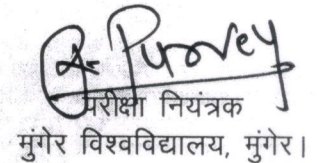 परीक्षा नियंत्रक
मुंगेर विश्वविद्यालय, मुंगेर।